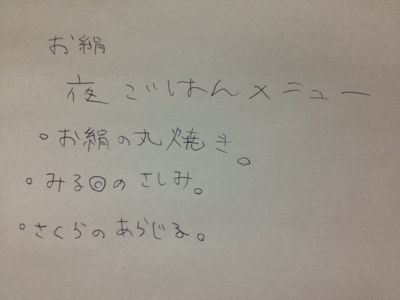 お絹
夜ごはんメニュー
。お絹の丸焼き。
。みる◎のさしみ。
。さくらのあらじる。